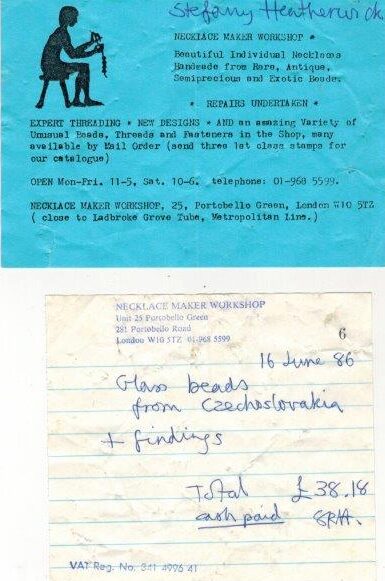 Stefany Heatherwick
NECKLACE MAKER WORKSHOP *
Beautiful Individual Necklaces
Handmade from Rare, Antique,
Semiprecious and Exotic Beads.
* REPAIRS UNDERTAKEN *
EXPERT THREADING * NEW DESIGNS * AND an amazing Variety of
Unusual Beads, Threads and Fasteners in the Shop, many
available by Mail Order (send three 1st class stamps for
our catalogue)
OPEN Mon-Fri. 11-5, Sat. 10-6. telephone: 01-968 5599.
NECKLACE MAKER WORKSHOP, 25, Portobello Green, London W10 5TZ
( close to Ladbroke Grove Tube, Metropolitan Line.)
NECKLACE MAKER WORKSHOP
Unit 25 Portobello Green
281 Portobello Road
London W10 5TZ 01-968 5599
6
16 June 86
Glass beads
from Czechoslovakia
+ findings
Total £38.18
cash paid
VAT Reg. No. 341 4996 41